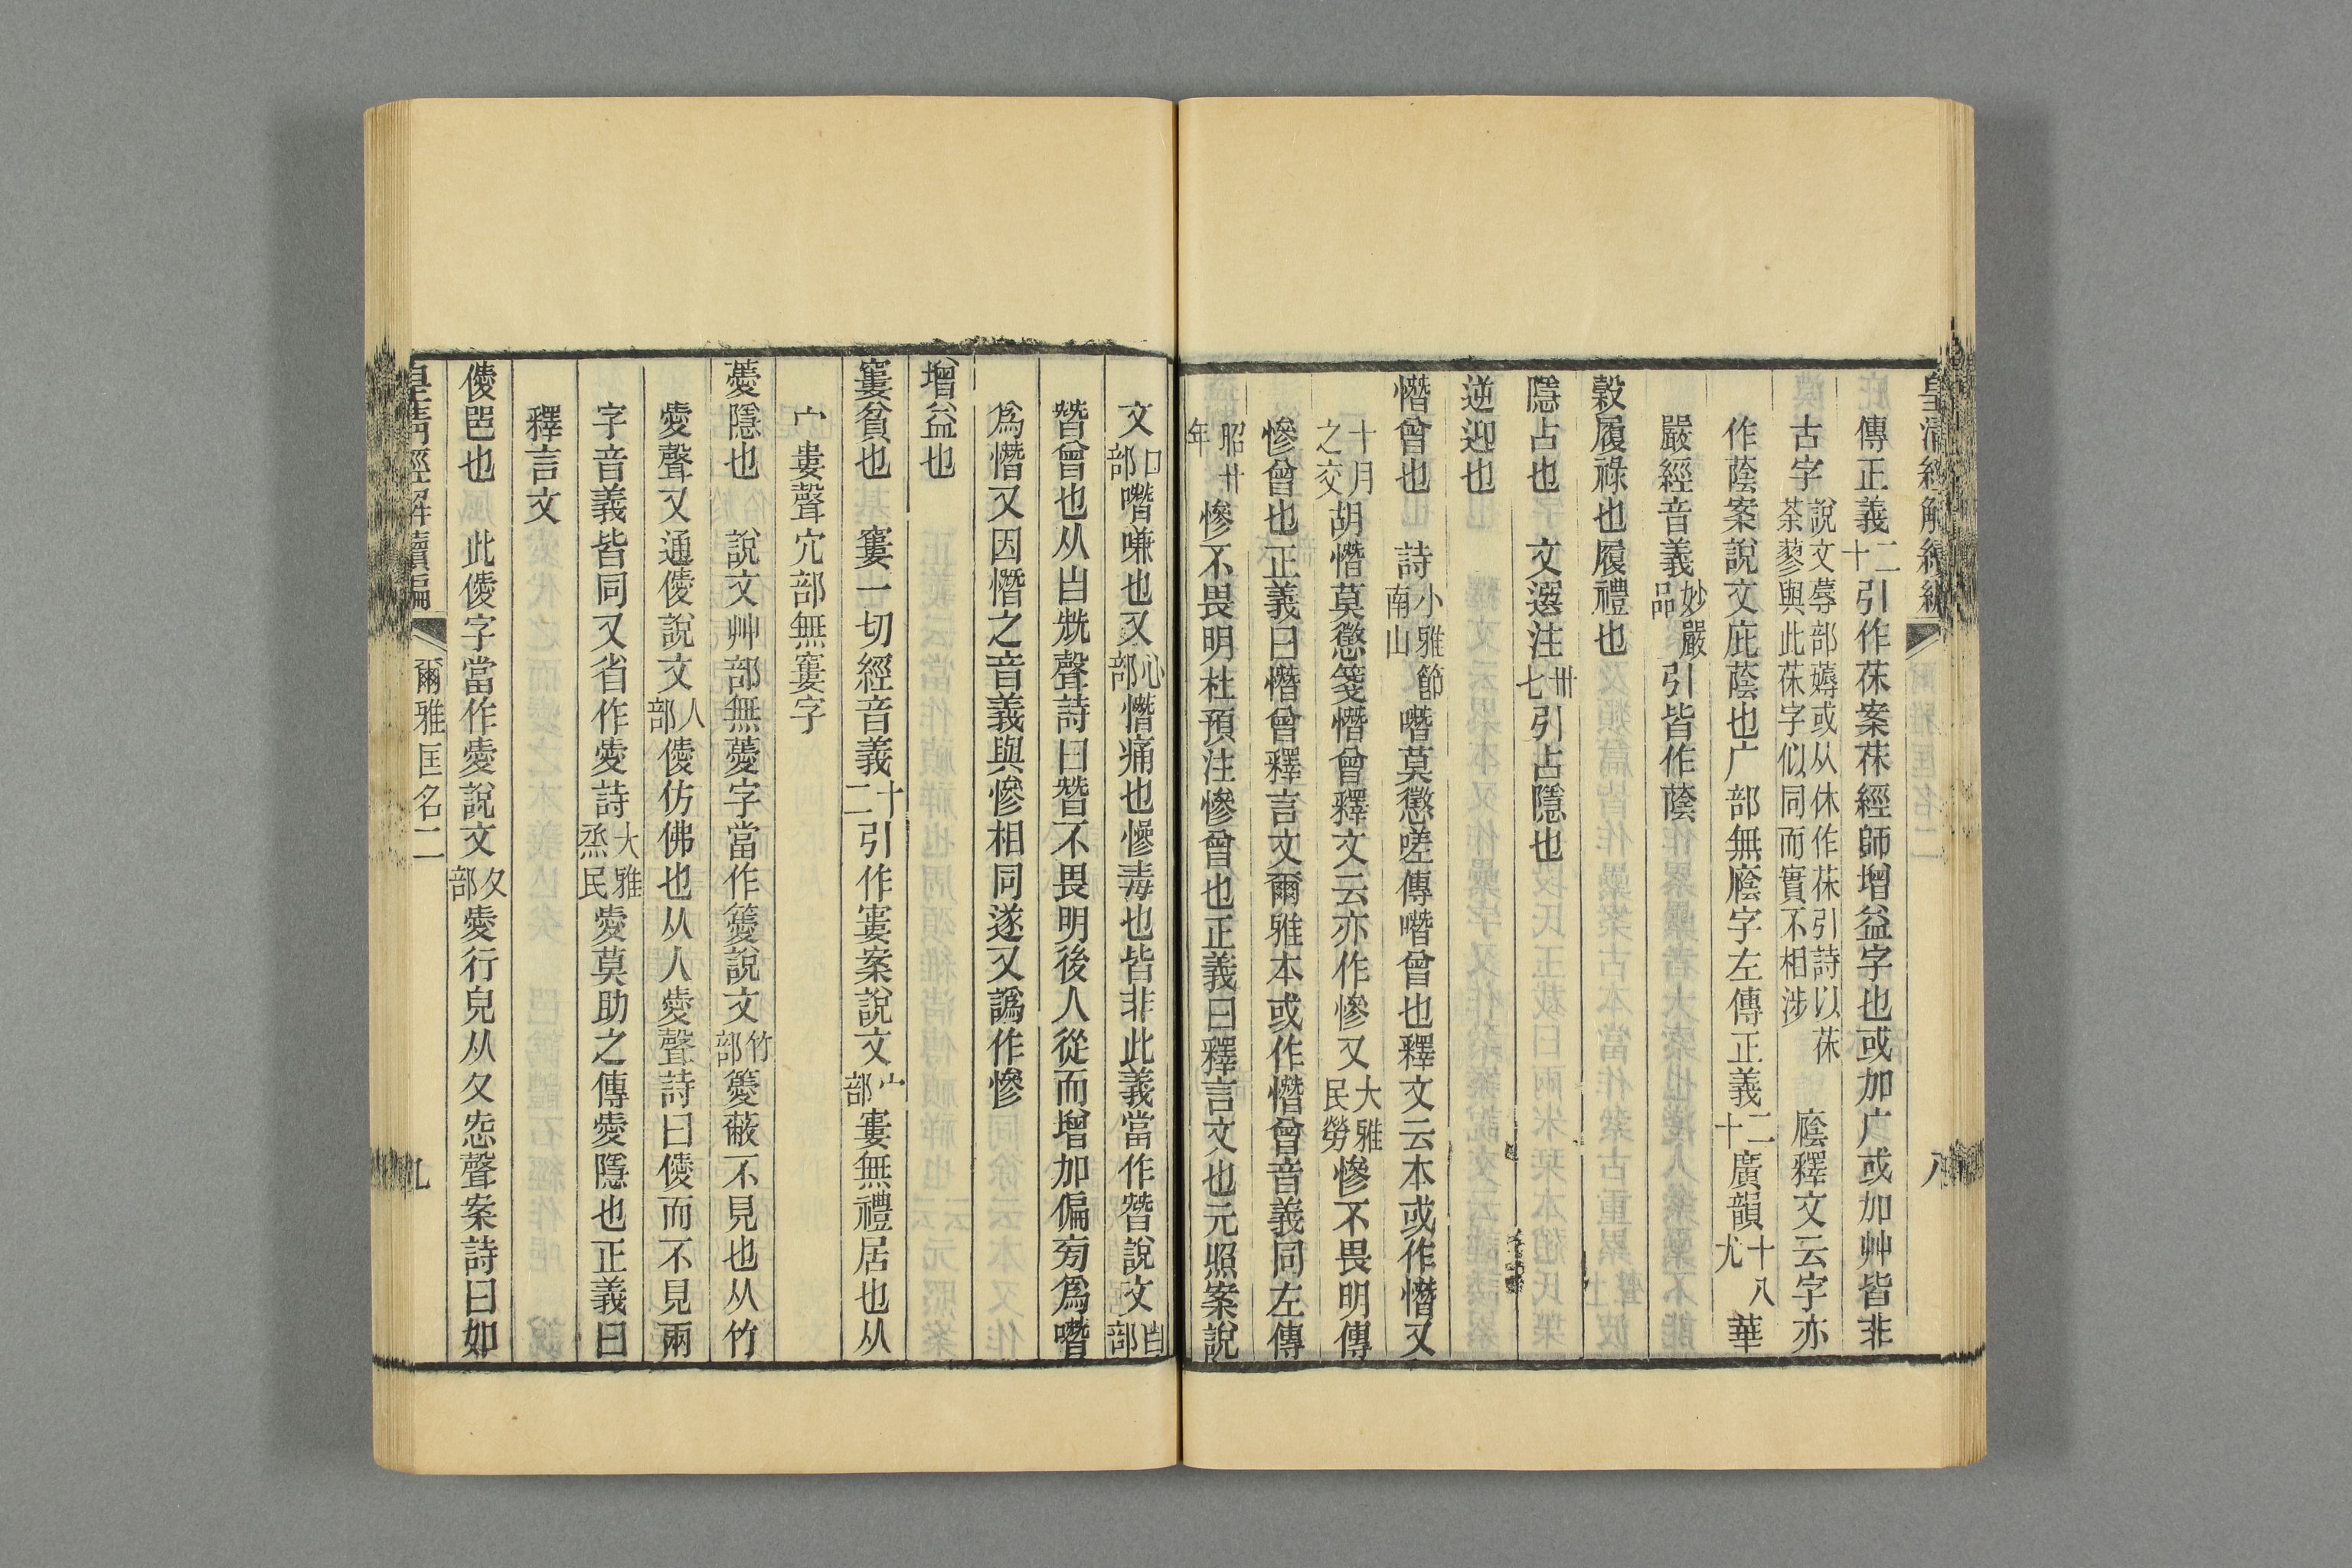 皇清經解續編
傳正義二十引作茠案茠經師增益字也或加广或加艸皆非
古字說文蓐部薅或从休作茠引詩以茠荼蓼與此茠字似同而實不相涉 廕釋文云字亦
作蔭案說文庇蔭也广部無廕字左傳正義二十廣韻十八尤華
嚴經音義妙嚴品引皆作蔭
穀履祿也履禮也
隱占也 文選注卅七引占隱也
逆迎也
憯曾也 詩小雅節南山噆莫懲嗟傳噆曾也釋文云本或作憯又
十月之交胡憯莫懲箋憯曾釋文云亦作慘又大雅民勞慘不畏明傳
慘曾也正義曰憯曾釋言文爾雅本或作憯曾音義同左傳
昭廿年慘不畏明杜預注慘曾也正義曰釋言文也元照案說
文口部噆嗛也又心部憯痛也慘毒也皆非此義當作朁說文曰部
朁曾也从曰兓聲詩曰朁不畏明後人從而增加偏旁爲噆
爲憯又因憯之音義與慘相同遂又譌作慘
增益也
窶貧也 窶一切經音義十二引作寠案說文宀部寠無禮居也从
宀婁聲穴部無窶字
薆隱也 說文艸部無薆字當作籆說文竹部籆蔽不見也从竹
愛聲又通僾說文人部僾仿佛也从人愛聲詩曰僾而不見兩
字音義皆同又省作愛詩大雅烝民愛莫助之傳愛隱也正義曰
釋言文
僾唈也 此僾字當作愛說文夊部愛行皃从夊㤅聲案詩曰如
皇清經解續編 爾雅匡名二 九